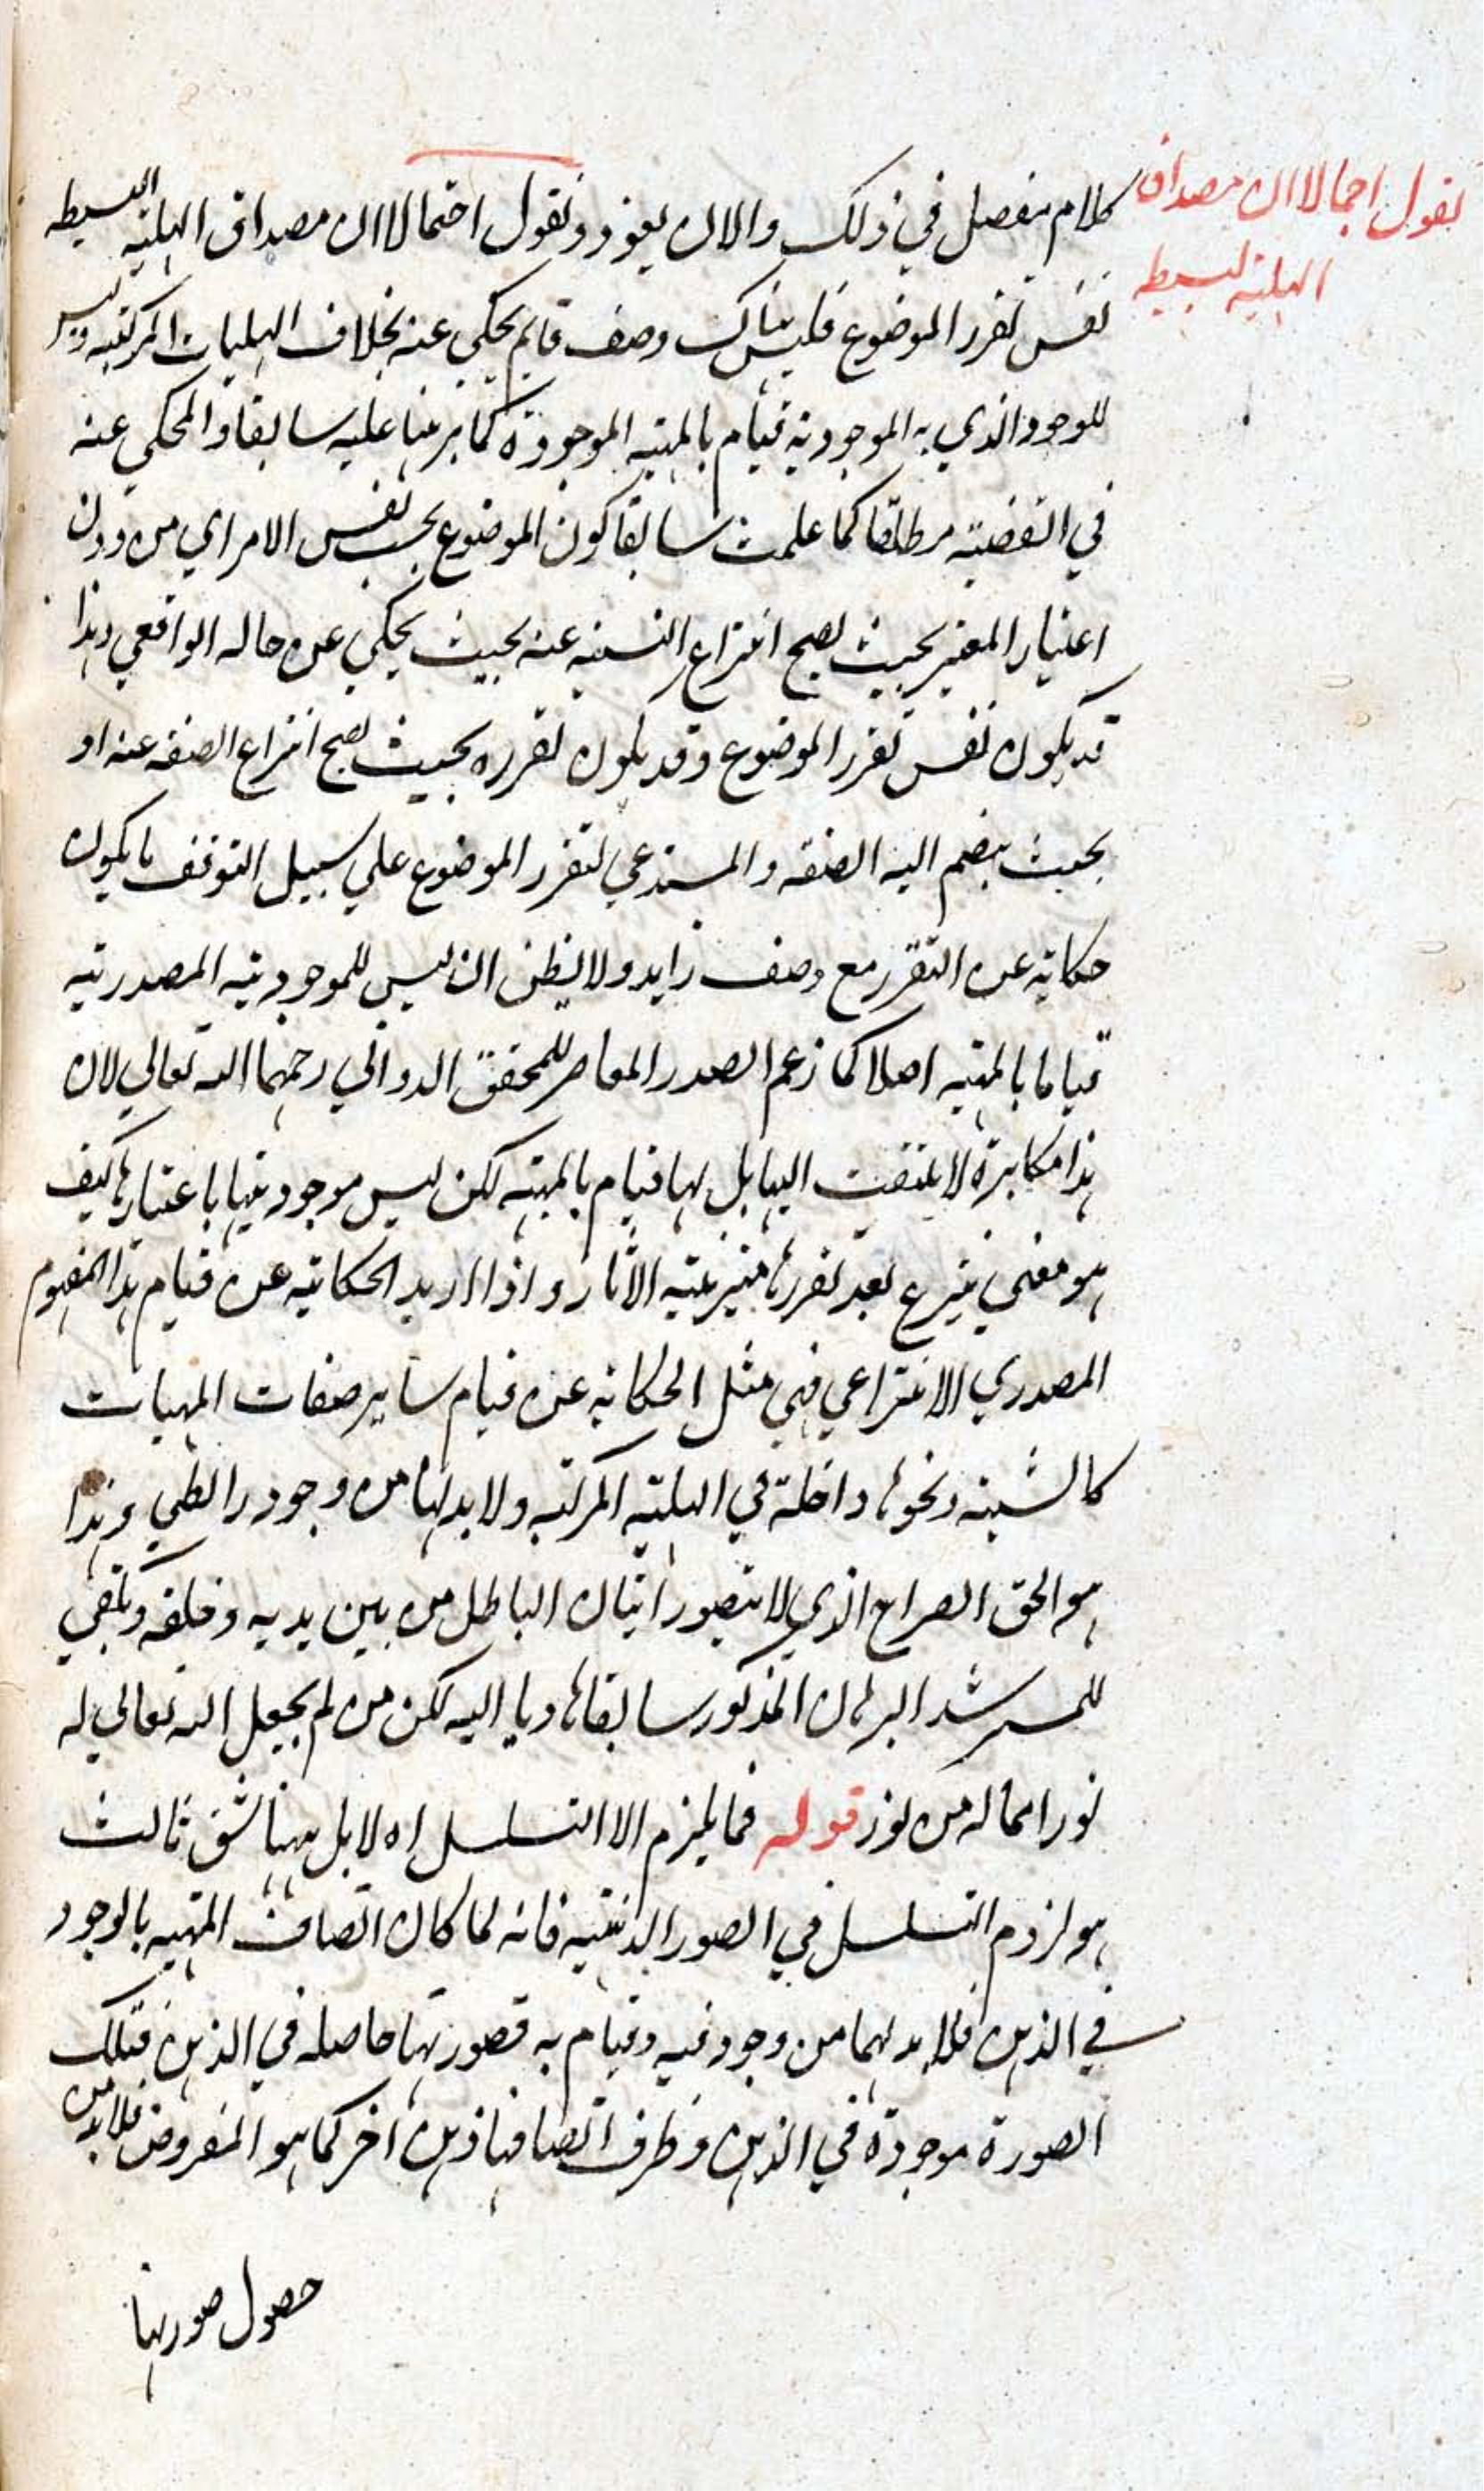 نقول اجمالا ان مصداق
الهلية البسيطة
كلام مفصل في ذلك والان نعود ونقول اجمالا ان مصداق الهلية البسيطه
نفس تقرر الموضوع فليس هناك وصف قايم يحكي عنه بخلاف الهليات المركبة وليس
للوجود الذي به الموجودية قيام بالمهية الموجودة كما برهنا عليه سابقا والمحكي عنه
في القضية مطلقا كما علمت سابقا كون الموضوع بحسب نفس الامر اي من دون
اعتبار المعتبر بحيث يصح انتزاع النسبة عنه بحيث يحكي عن حاله الواقعي وهذا
قد يكون نفس تقرر الموضوع وقد يكون تقرره بحيث يصح انتزاع الصفه عنه او
بحيث ينضم اليه الصفه والمستدعي لتقرر الموضوع علي سبيل التوقف ما يكون
حكاية عن التقرر مع وصف زايد ولا يظن ان ليس للموجودية المصدرية
قياما بالمهية اصلا كما زعم الصدر المعاصر للمحقق الدواني رحمهما الله تعالي لان
هذا مكابرة لا يلتفت اليها بل لها قيام بالمهية لكن ليس موجوديتها باعتبارها كيف
هو معني ينتزع بعد تقررها مترتبة الآثار واذا اريد الحكاية عن قيام هذا المفهوم
المصدري الانتزاعي فهي مثل الحكاية عن قيام ساير صفات المهيات
كالشيئية ونحوها داخلة في الهلية المركبة ولا بد لها من وجود رابطي وهذا
هو الحق الصراح الذي لا يتصور اتيان الباطل من بين يديه وخلفه ويكفي
للمسترشد البرهان المذكور سابقا هاديا اليه لكن من لم يجعل الله تعالي له
نورا فما له من نور قوله فما يلزم الا التسلسل اه لا بل ههنا شق ثالث
هو لزوم التسلسل في الصور الذهنية فانه لما كان اتصاف المهية بالوجود
في الذهن فلا بد لهما من وجود فيه وقيام به فصورتها حاصله في الذهن فتلك
الصورة موجودة في الذهن وظرف اتصافها ذهن اخر كما هو المفروض فلا بد من
حصول صورتها